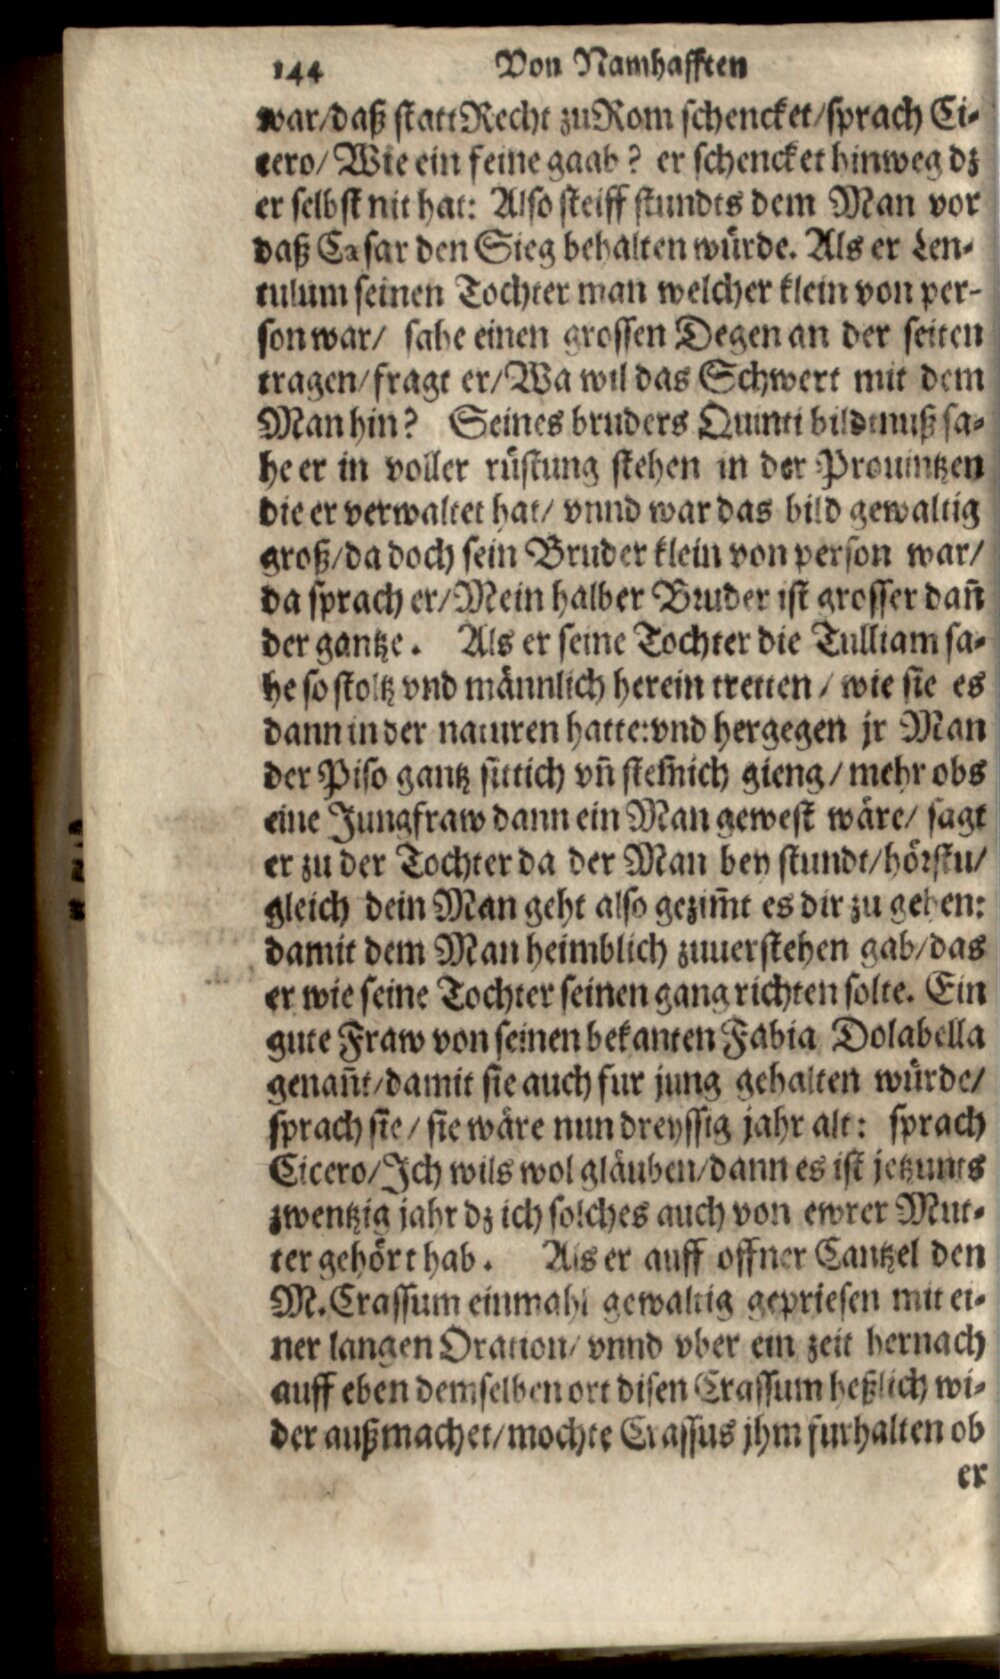 144 Von Namhafften
war/daß statt Recht zu Rom schencket/sprach Ci-
cero/ Wie ein feine gaab? er schencket hinweg dz
er selbst nit hat: Also steiff stundts dem Man vor
daß Cæsar den Sieg behalten wůrde. Als er Len-
tulum seinen Tochter man welcher klein von per-
son war/ sahe einen grossen Degen an der seiten
tragen/fragt er/Wa wil das Schwert mit dem
Man hin? Seines bruders Quinti bildtnuß sa-
he er in voller růstung stehen in der Prouintzen
die er verwaltet hat/ vnnd war das bild gewaltig
groß/da doch sein Bruder klein von person war/
da sprach er/Mein halber Bruder ist grosser dañ
der gantze. Als er seine Tochter die Tulliam sa-
he so stoltz vnd männlich herein tretten/ wie sie es
dann in der naturen hatte: vnd hergegen jr Man
der Piso gantz sittich vñ stem̃ich gieng/ mehr obs
eine Jungfraw dann ein Man gewest wäre/ sagt
er zu der Tochter da der Man bey stundt/hörstu/
gleich dein Man geht also gezim̃t es dir zu gehen:
damit dem Man heimblich zuuerstehen gab/das
er wie seine Tochter seinen gang richten solte. Ein
gute Fraw von seinen bekanten Fabia Dolabella
genañt/damit sie auch fur jung gehalten wůrde/
sprach sie/ sie wäre nun dreyssig jahr alt: sprach
Cicero/Ich wils wol gläuben/dann es ist jetzunts
zwentzig jahr dz ich solches auch von ewrer Mut-
ter gehört hab. Als er auff offner Cantzel den
M. Crassum einmahl gewaltig gepriesen mit ei-
ner langen Oration/ vnnd vber ein zeit hernach
auff eben demselben ort disen Crassum heßlich wi-
der außmachet/mochte Crassus jhm furhalten ob
er